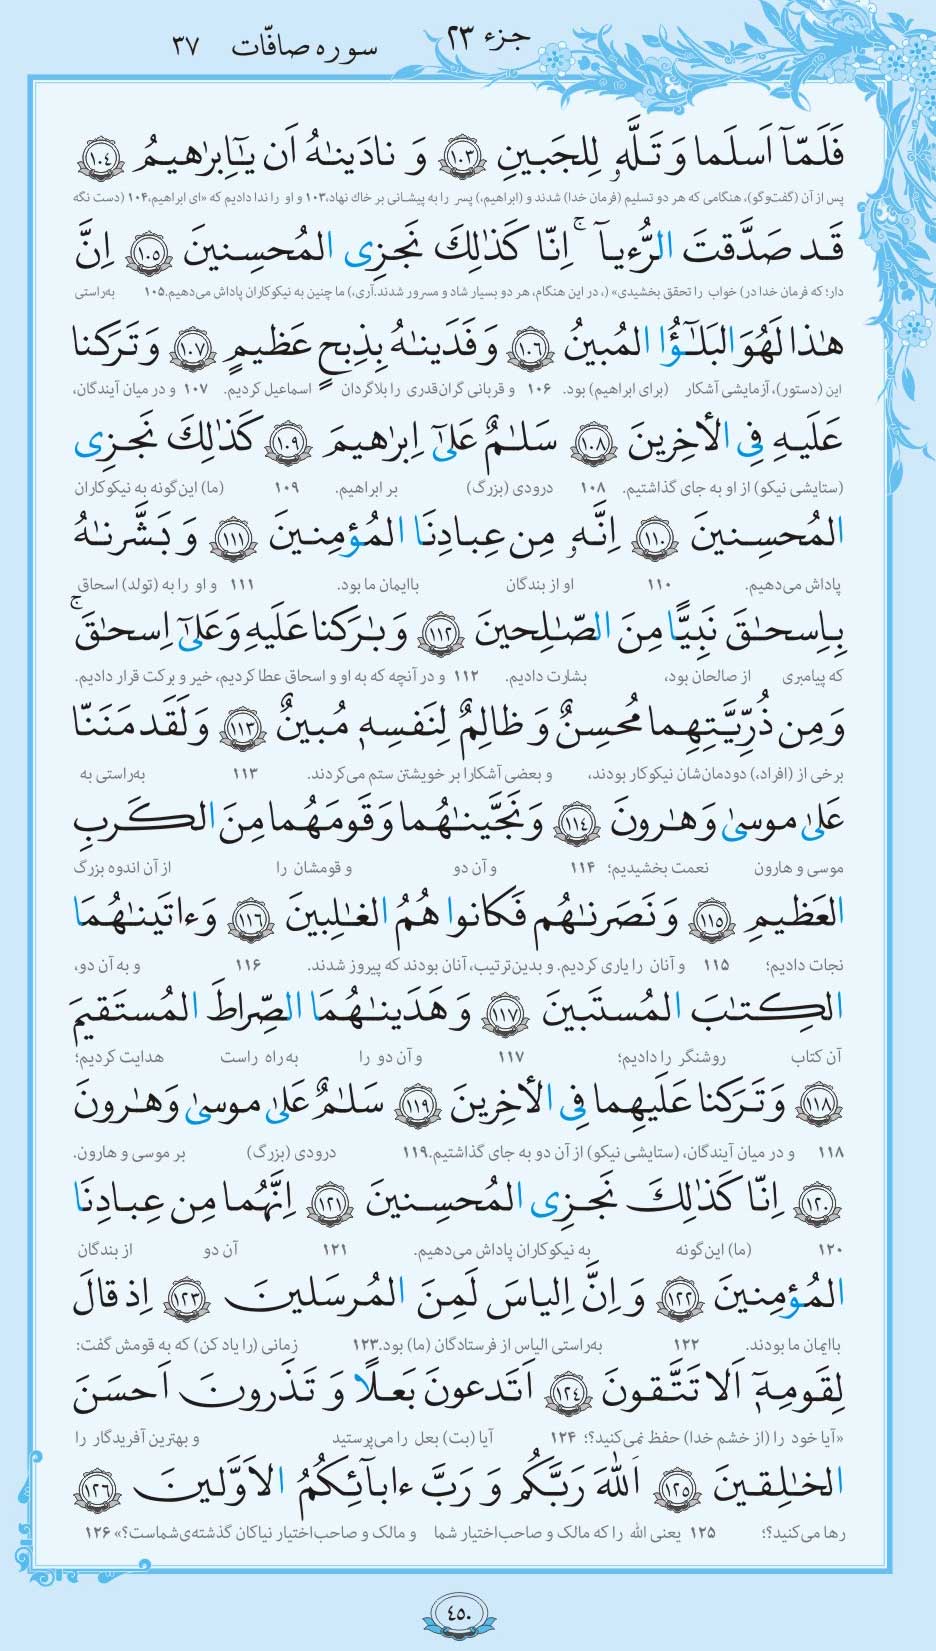 جزء ۲۳
سوره صافّات ۳۷
فَلَمّآ اَسلَما وَ تَلَّهٗ لِلجَبینِ ۱۰۳ وَ نادَینٰهُ اَن یٰٓاِبرٰهیمُ ۱۰۴
پس از آن (گفت‌وگو)، هنگامی که هر دو تسلیم (فرمان خدا) شدند و (ابراهیم،) پسر را به پیشانی بر خاك نهاد، ۱۰۳ و او را ندا دادیم که «ای ابراهیم، ۱۰۴ (دست نگه
قَد صَدَّقتَ الرُّءیآ ۚ اِنّا کَذٰلِكَ نَجزِی المُحسِنینَ ۱۰۵ اِنَّ
دار؛ که فرمان خدا در) خواب را تحقق بخشیدی» (، در این هنگام، هر دو بسیار شاد و مسرور شدند. آری،) ما چنین به نیکوکاران پاداش می‌دهیم. ۱۰۵ به‌راستی
هٰذا لَهُوَ البَلٰٓؤُا المُبینُ ۱۰۶ وَ فَدَینٰهُ بِذِبحٍ عَظیمٍ ۱۰۷ وَ تَرَکنا
این (دستور)، آزمایشی آشکار (برای ابراهیم) بود. ۱۰۶ و قربانی گران‌قدری را بلاگردان اسماعیل کردیم. ۱۰۷ و در میان آیندگان،
عَلَیهِ فِی الأخِرینَ ۱۰۸ سَلٰمٌ عَلیٰٓ اِبرٰهیمَ ۱۰۹ کَذٰلِكَ نَجزِی
(ستایشی نیکو) از او به جای گذاشتیم. ۱۰۸ درودی (بزرگ) بر ابراهیم. ۱۰۹ (ما) این‌گونه به نیکوکاران
المُحسِنینَ ۱۱۰ اِنَّهٗ مِن عِبادِنَا المُؤمِنینَ ۱۱۱ وَ بَشَّرنٰهُ
پاداش می‌دهیم. ۱۱۰ او از بندگان باایمان ما بود. ۱۱۱ و او را به (تولد) اسحاق
بِاِسحٰقَ نَبِیًّا مِنَ الصّٰلِحینَ ۱۱۲ وَ بٰرَکنا عَلَیهِ وَ عَلیٰٓ اِسحٰقَ ۚ
که پیامبری از صالحان بود، بشارت دادیم. ۱۱۲ و در آنچه که به او و اسحاق عطا کردیم، خیر و برکت قرار دادیم.
وَ مِن ذُرِّیَّتِهِما مُحسِنٌ وَ ظالِمٌ لِنَفسِهٖ مُبینٌ ۱۱۳ وَ لَقَد مَنَنّا
برخی از (افراد،) دودمان‌شان نیکوکار بودند، و بعضی آشکارا بر خویشتن ستم می‌کردند. ۱۱۳ به‌راستی به
عَلیٰ موسیٰ وَ هٰرونَ ۱۱۴ وَ نَجَّینٰهُما وَ قَومَهُما مِنَ الکَربِ
موسی و هارون نعمت بخشیدیم؛ ۱۱۴ و آن دو و قومشان را از آن اندوه بزرگ
العَظیمِ ۱۱۵ وَ نَصَرنٰهُم فَکانوا هُمُ الغٰلِبینَ ۱۱۶ وَ ءاتَینٰهُمَا
نجات دادیم؛ ۱۱۵ و آنان را یاری کردیم. و بدین‌ترتیب، آنان بودند که پیروز شدند. ۱۱۶ و به آن دو،
الکِتٰبَ المُستَبینَ ۱۱۷ وَ هَدَینٰهُمَا الصِّراطَ المُستَقیمَ
آن کتاب روشنگر را دادیم؛ ۱۱۷ و آن دو را به‌راه راست هدایت کردیم؛
۱۱۸ وَ تَرَکنا عَلَیهِما فِی الأخِرینَ ۱۱۹ سَلٰمٌ عَلیٰ موسیٰ وَ هٰرونَ
۱۱۸ و در میان آیندگان، (ستایشی نیکو) از آن دو به جای گذاشتیم. ۱۱۹ درودی (بزرگ) بر موسی و هارون.
۱۲۰ اِنّا کَذٰلِكَ نَجزِی المُحسِنینَ ۱۲۱ اِنَّهُما مِن عِبادِنَا
۱۲۰ (ما) این‌گونه به نیکوکاران پاداش می‌دهیم. ۱۲۱ آن دو از بندگان
المُؤمِنینَ ۱۲۲ وَ اِنَّ اِلیاسَ لَمِنَ المُرسَلینَ ۱۲۳ اِذ قالَ
باایمان ما بودند. ۱۲۲ به‌راستی الیاس از فرستادگان (ما) بود. ۱۲۳ زمانی (را یاد کن) که به قومش گفت:
لِقَومِهٖٓ اَلا تَتَّقونَ ۱۲۴ اَتَدعونَ بَعلًا وَ تَذَرونَ اَحسَنَ
«آیا خود را (از خشم خدا) حفظ نمی‌کنید؟؛ ۱۲۴ آیا (بت) بعل را می‌پرستید و بهترین آفریدگار را
الخٰلِقینَ ۱۲۵ اَللهَ رَبَّکُم وَ رَبَّ ءابآئِکُمُ الاَوَّلینَ ۱۲۶
رها می‌کنید؟؛ ۱۲۵ یعنی الله را که مالک و صاحب‌اختیار شما و مالک و صاحب‌اختیار نیاکان گذشته‌ی‌شماست؟» ۱۲۶
۴۵۰